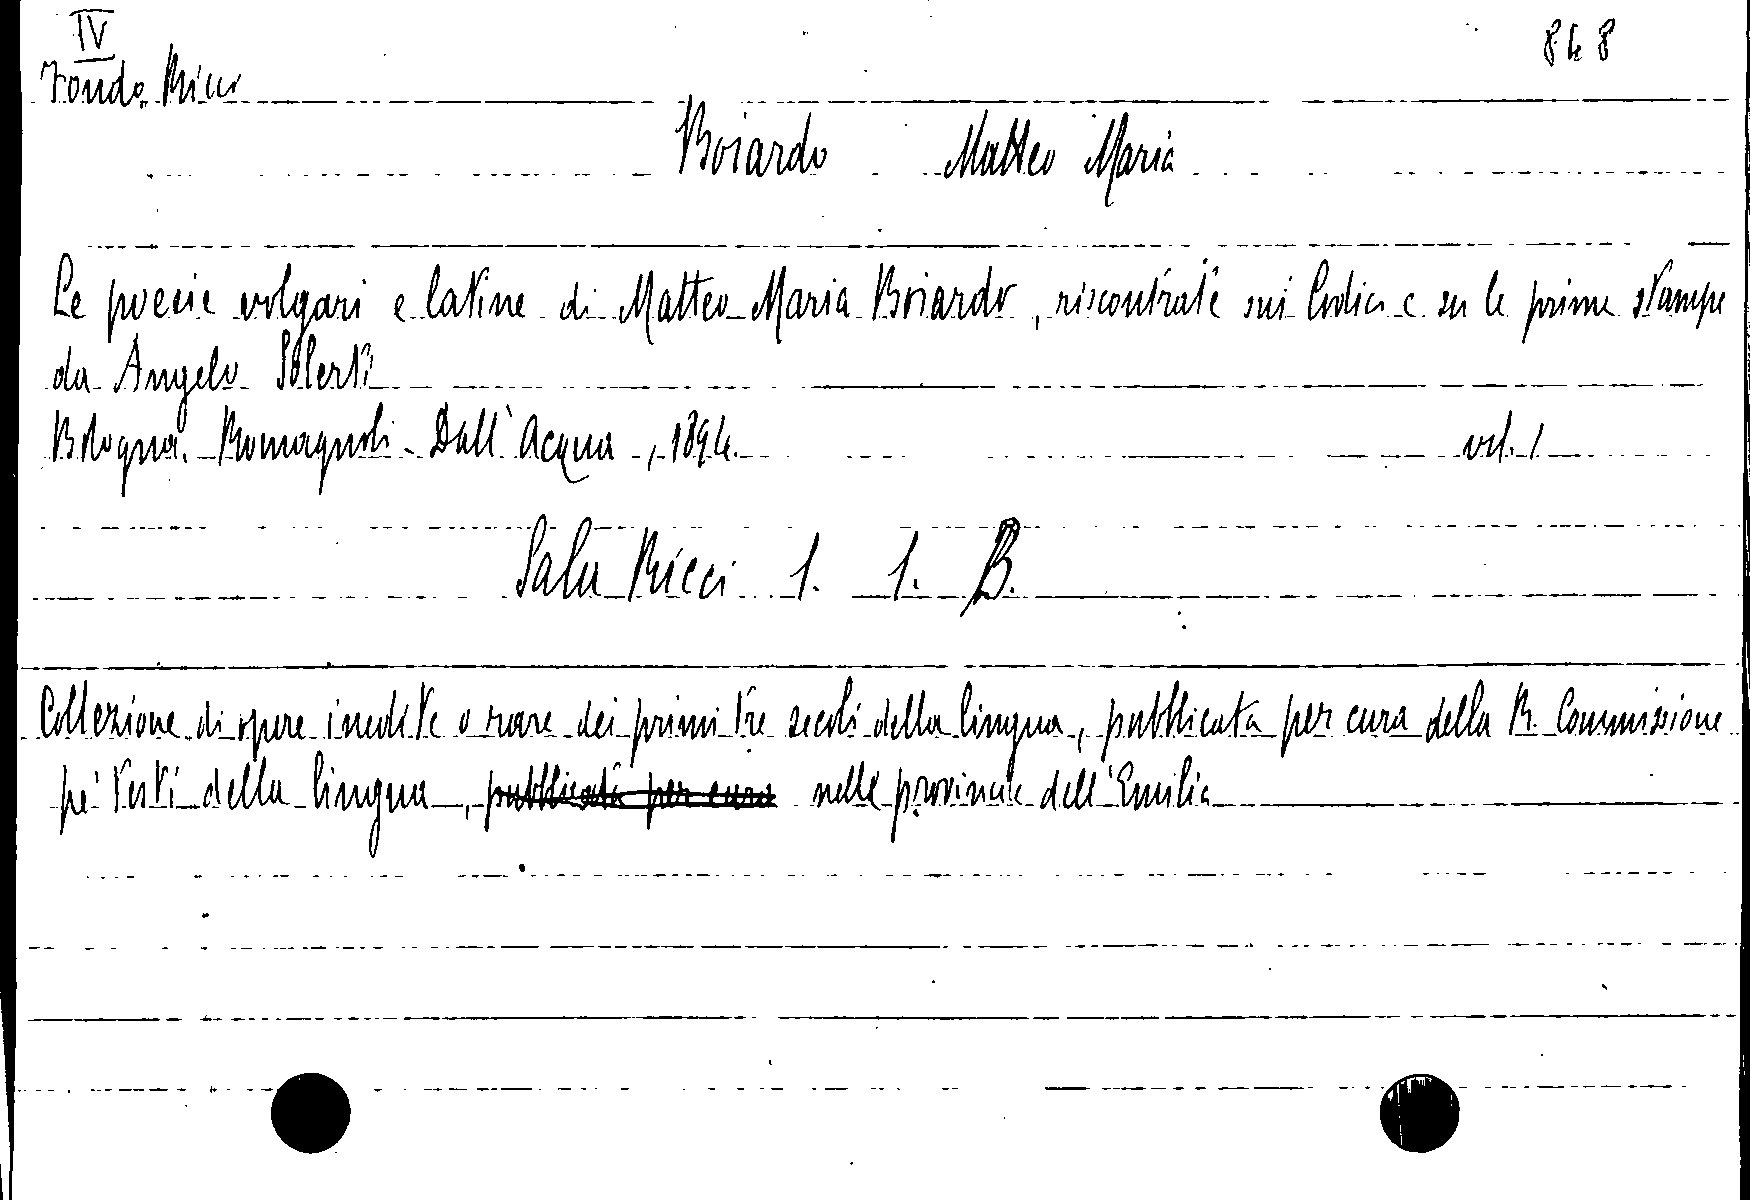 IV
848
Fondo Ricci
Boiardo Matteo Maria
Le poesie volgari e latine di Matteo Maria Boiardo, riscontrate sui Codici e su le prime stampe
da Angelo Solerti
Bologna. Romagnoli - Dall'Acqua, 1894. vol. 1
Sala Ricci 1. 1. B.
Collezione di opere inedite o rare dei primi tre secoli della lingua, pubblicata per cura della R. Commissione
pe' testi della lingua, pubblicata per cura nelle provincie dell'Emilia